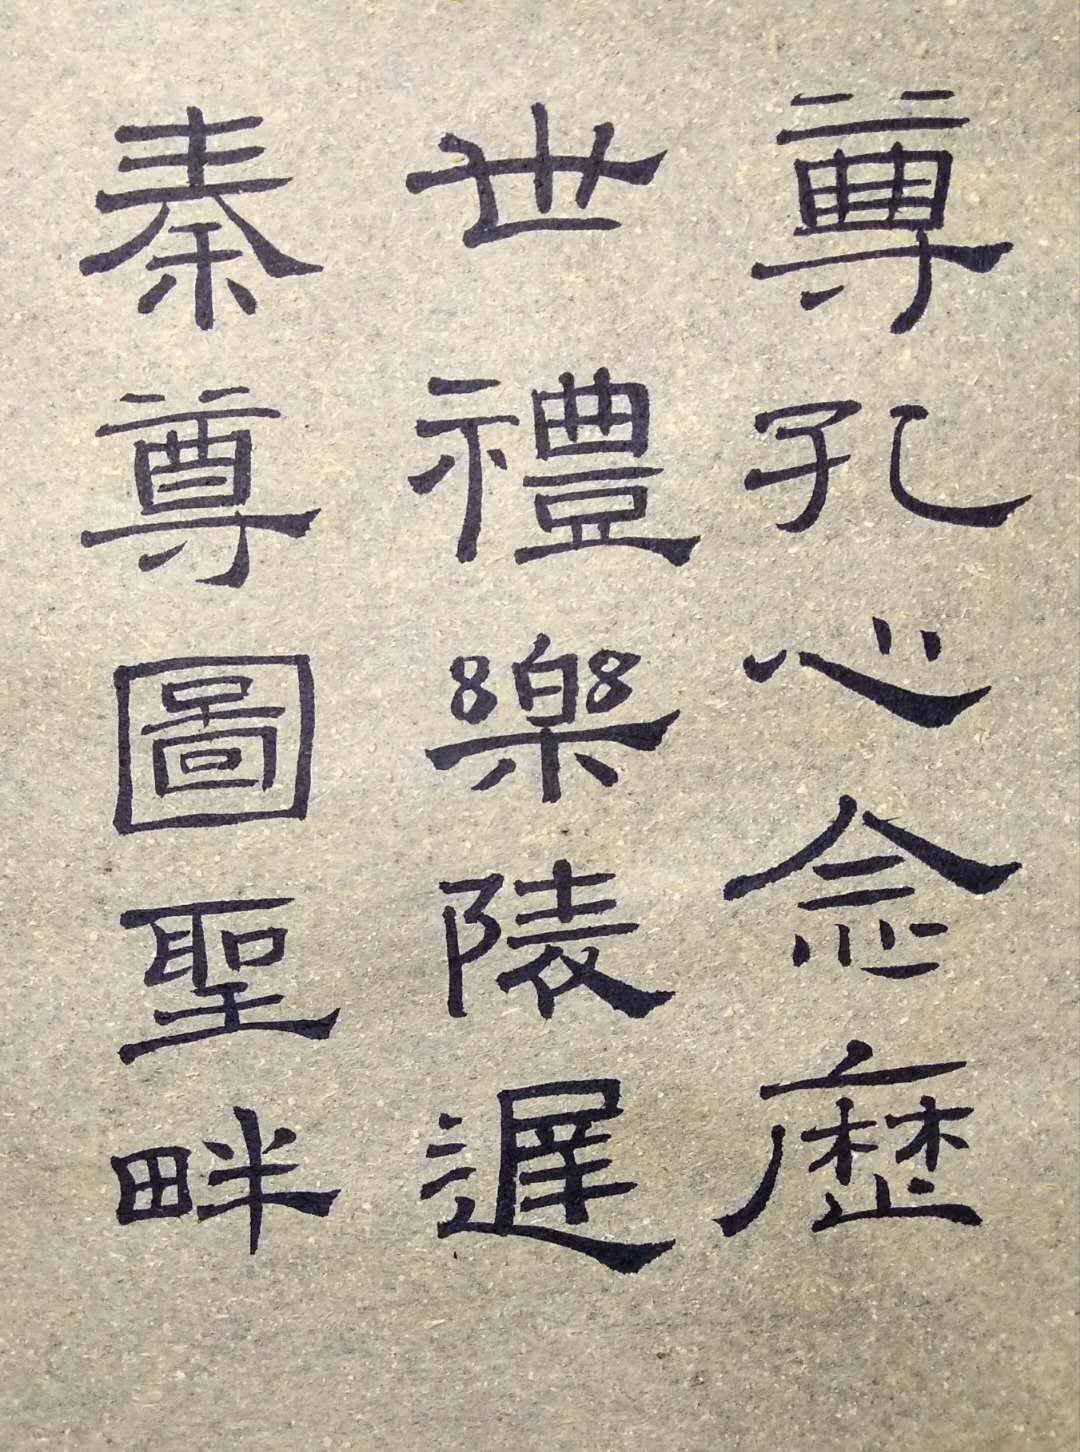 尊孔心念歷
世禮樂陵遲
秦尊圖聖畔